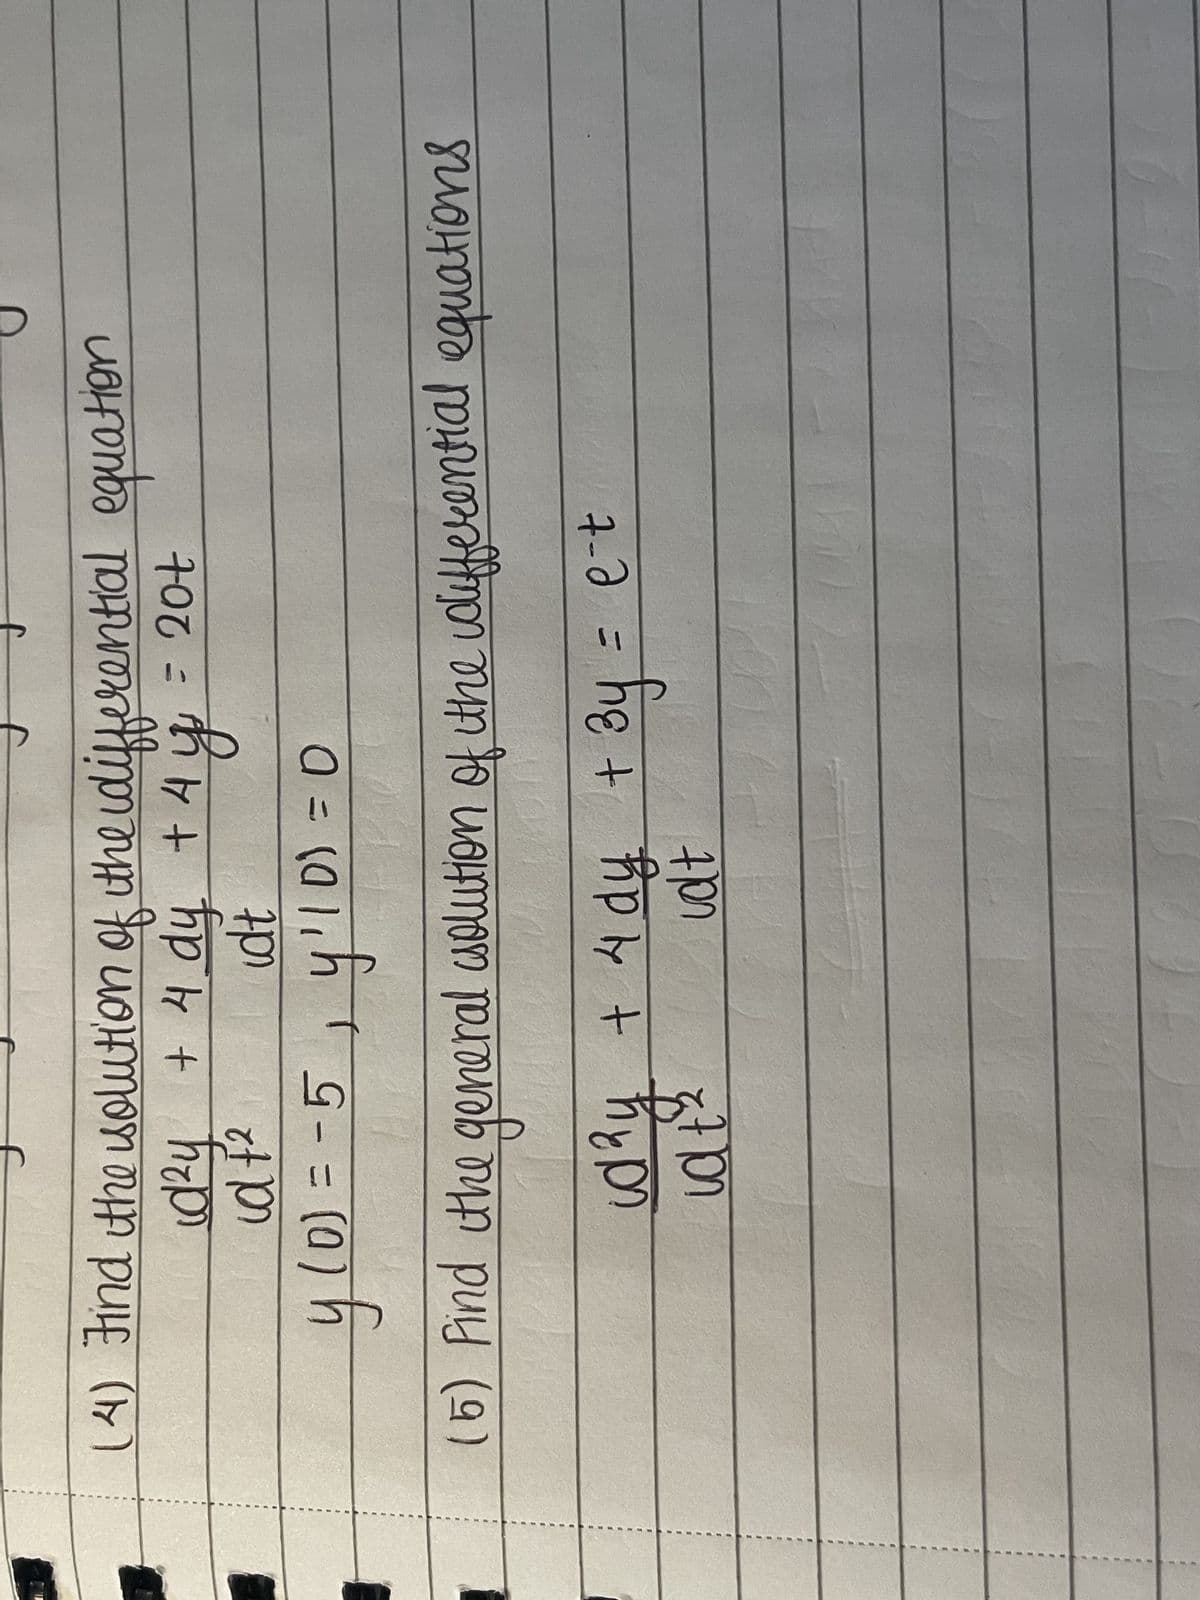 (4) Find the solution of the differential equation
d²y + 4 dy + 4y = 20t
dt² dt
y(0) = -5, y'(0) = 0
(5) Find the general solution of the differential equations
d²y + 4 dy + 3y = e-t
dt² dt